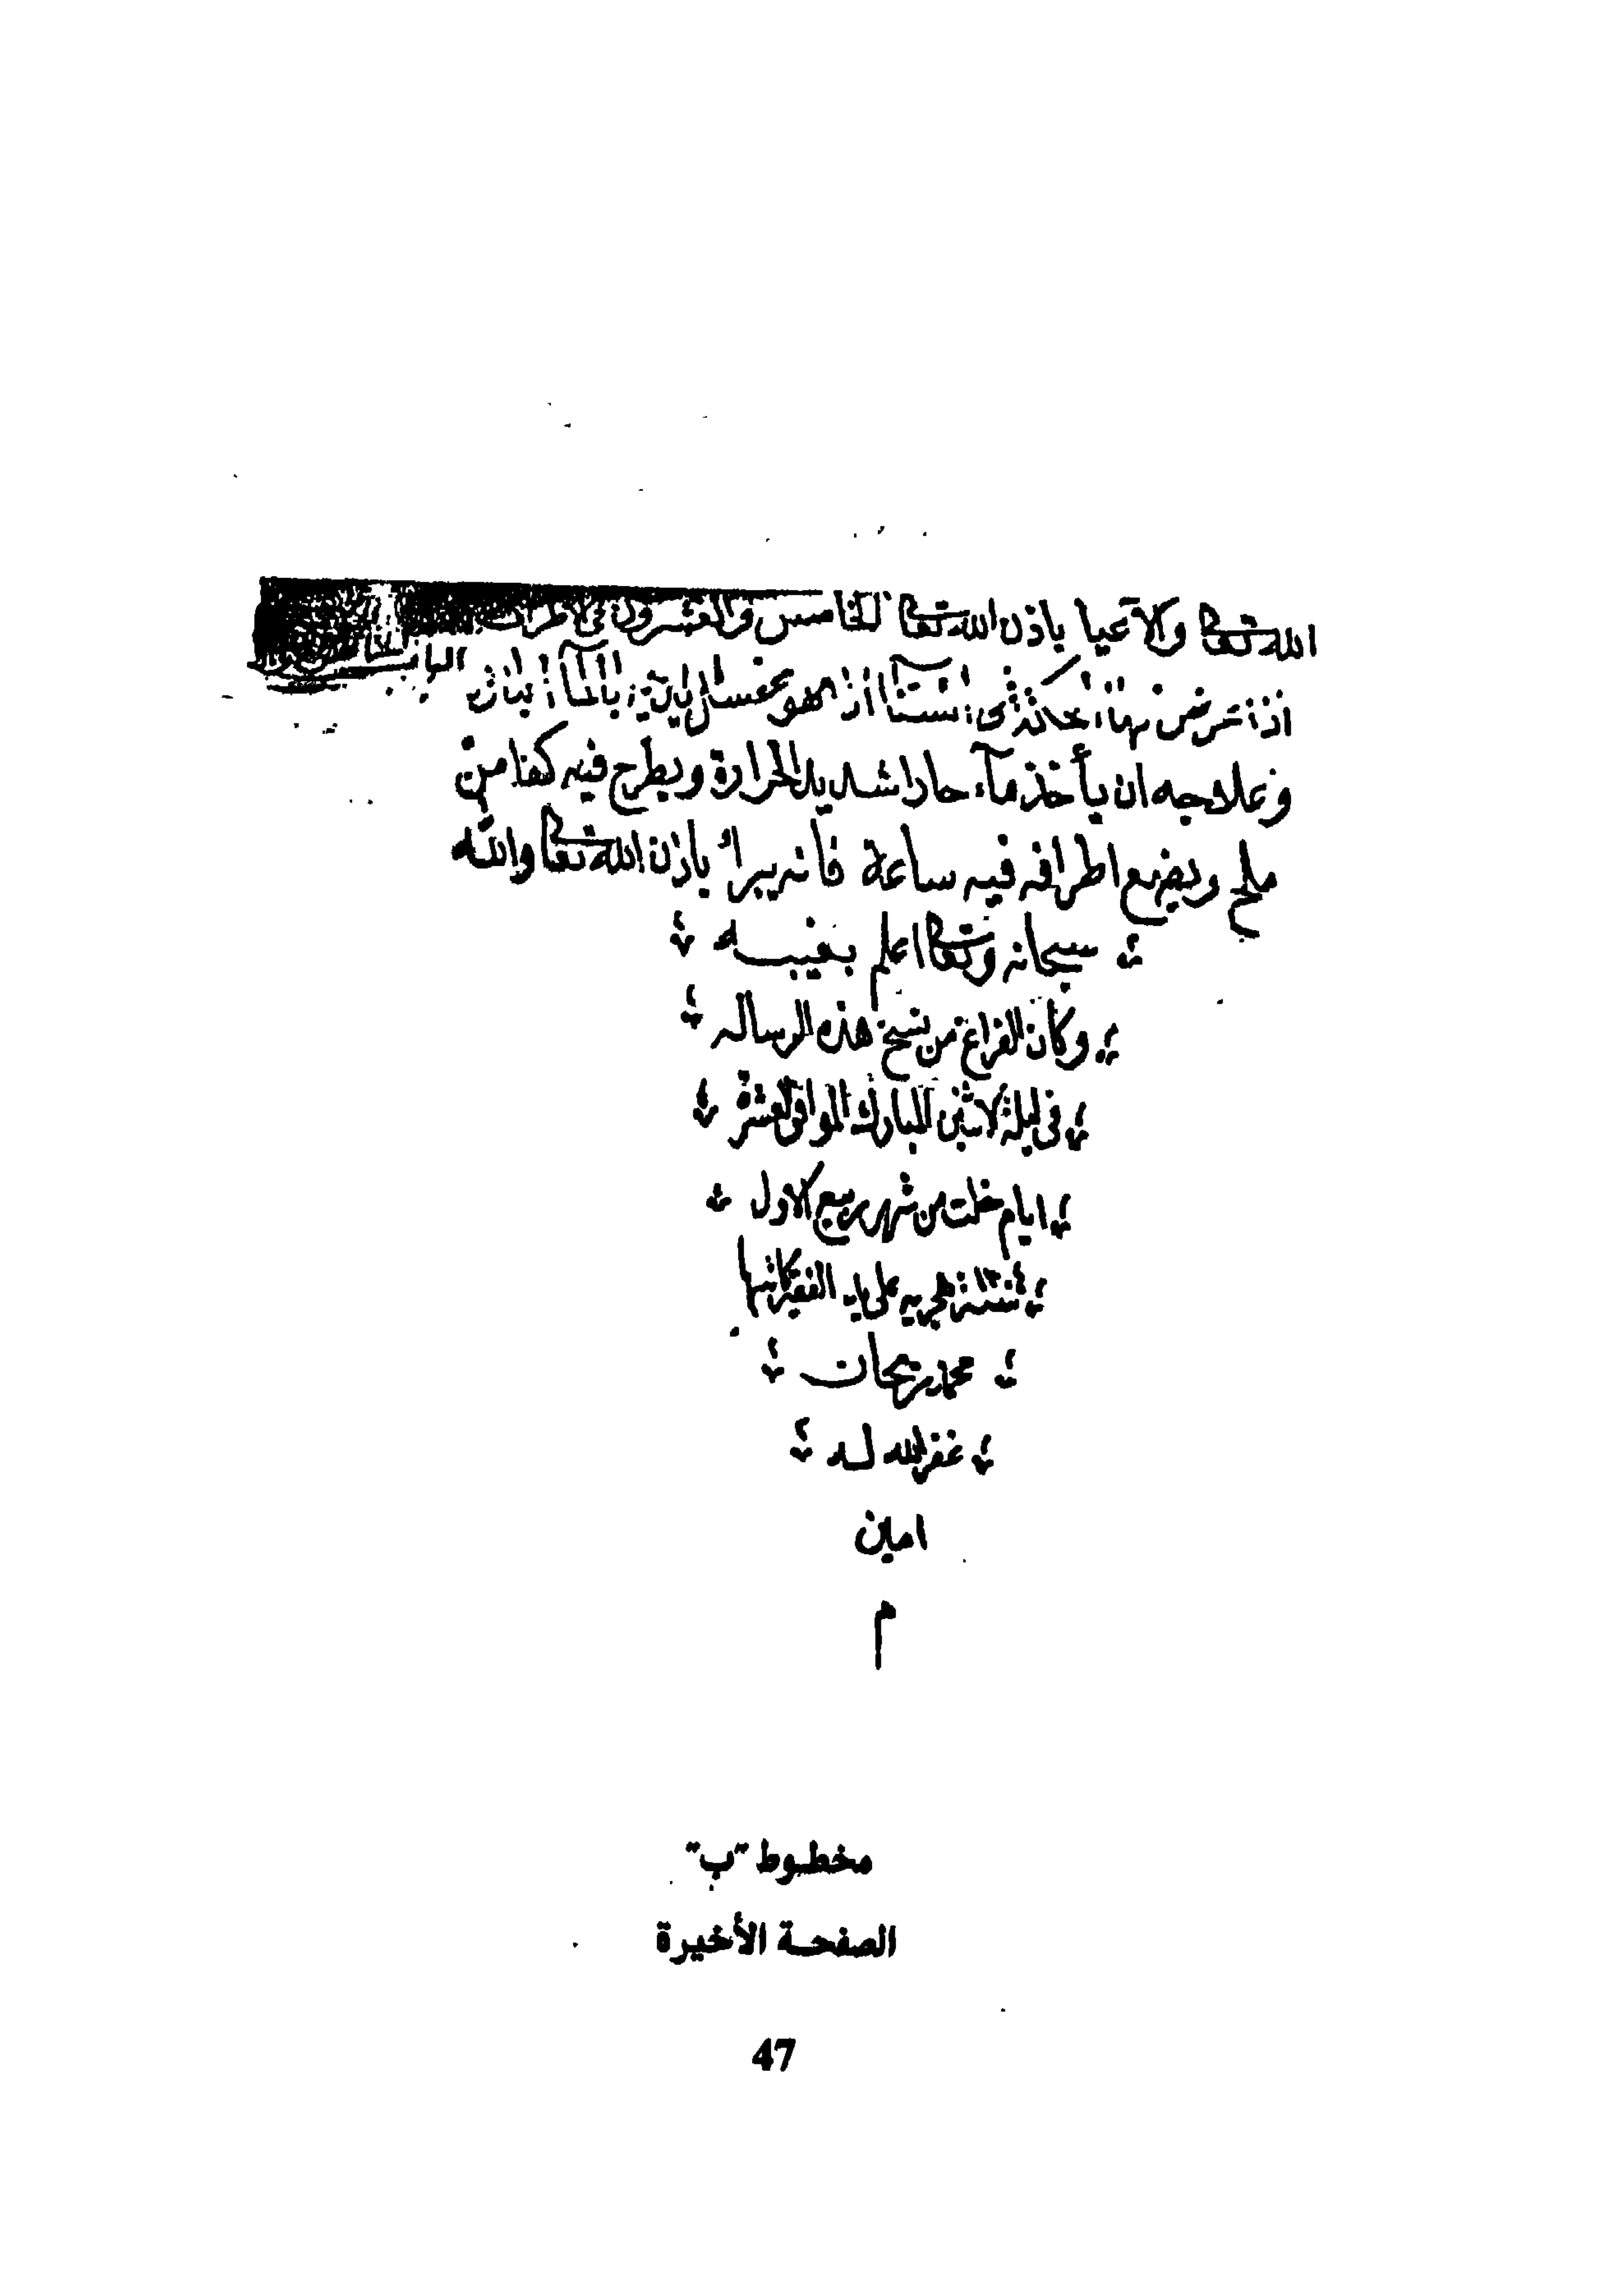 الله تعالى والاعيا باذن الله تعالى الخامس والعشرون في الاطراف
الباب
اذا عرض لها الشتا اذا هو بالماء البارد
وعلاجه ان يأخذ مآء حارا شديد الحرارة ويطرح فيه كفا من
ملح ويضع اطرافه فيه ساعة فانه يبرأ باذن الله تعالى والله
سبحانه وتعالى اعلم بغيبه
وكان الفراغ من نسخ هذه الرساله
في ليلة الاثنين المبارك الموافق لعشرة
ايام خلت من شهر ربيع الاول
سنة هجريه على يد الفقير كاتبها
محمد ريحان
غفر الله له
امين
م
مخطوط "ب"
الصفحة الأخيرة
47